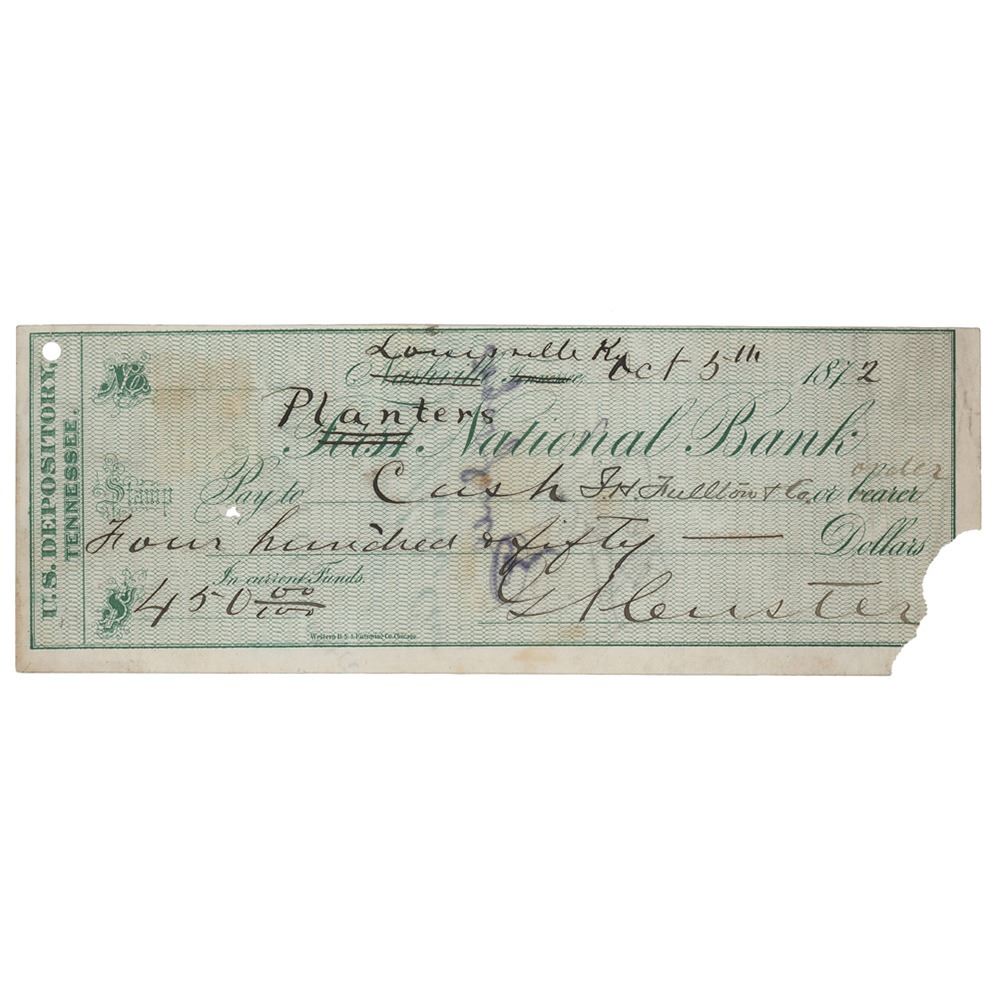 U.S. DEPOSITORY,
TENNESSEE.
No.
Louisville Ky Oct 5th 1872
Nashville Tennessee
Planters
First National Bank
Stamp
Pay to Cash & Co. or bearer
order
Four hundred & fifty — Dollars
In current Funds.
$450 00/100
G A Custer
Western B. N. & Engraving Co. Chicago.